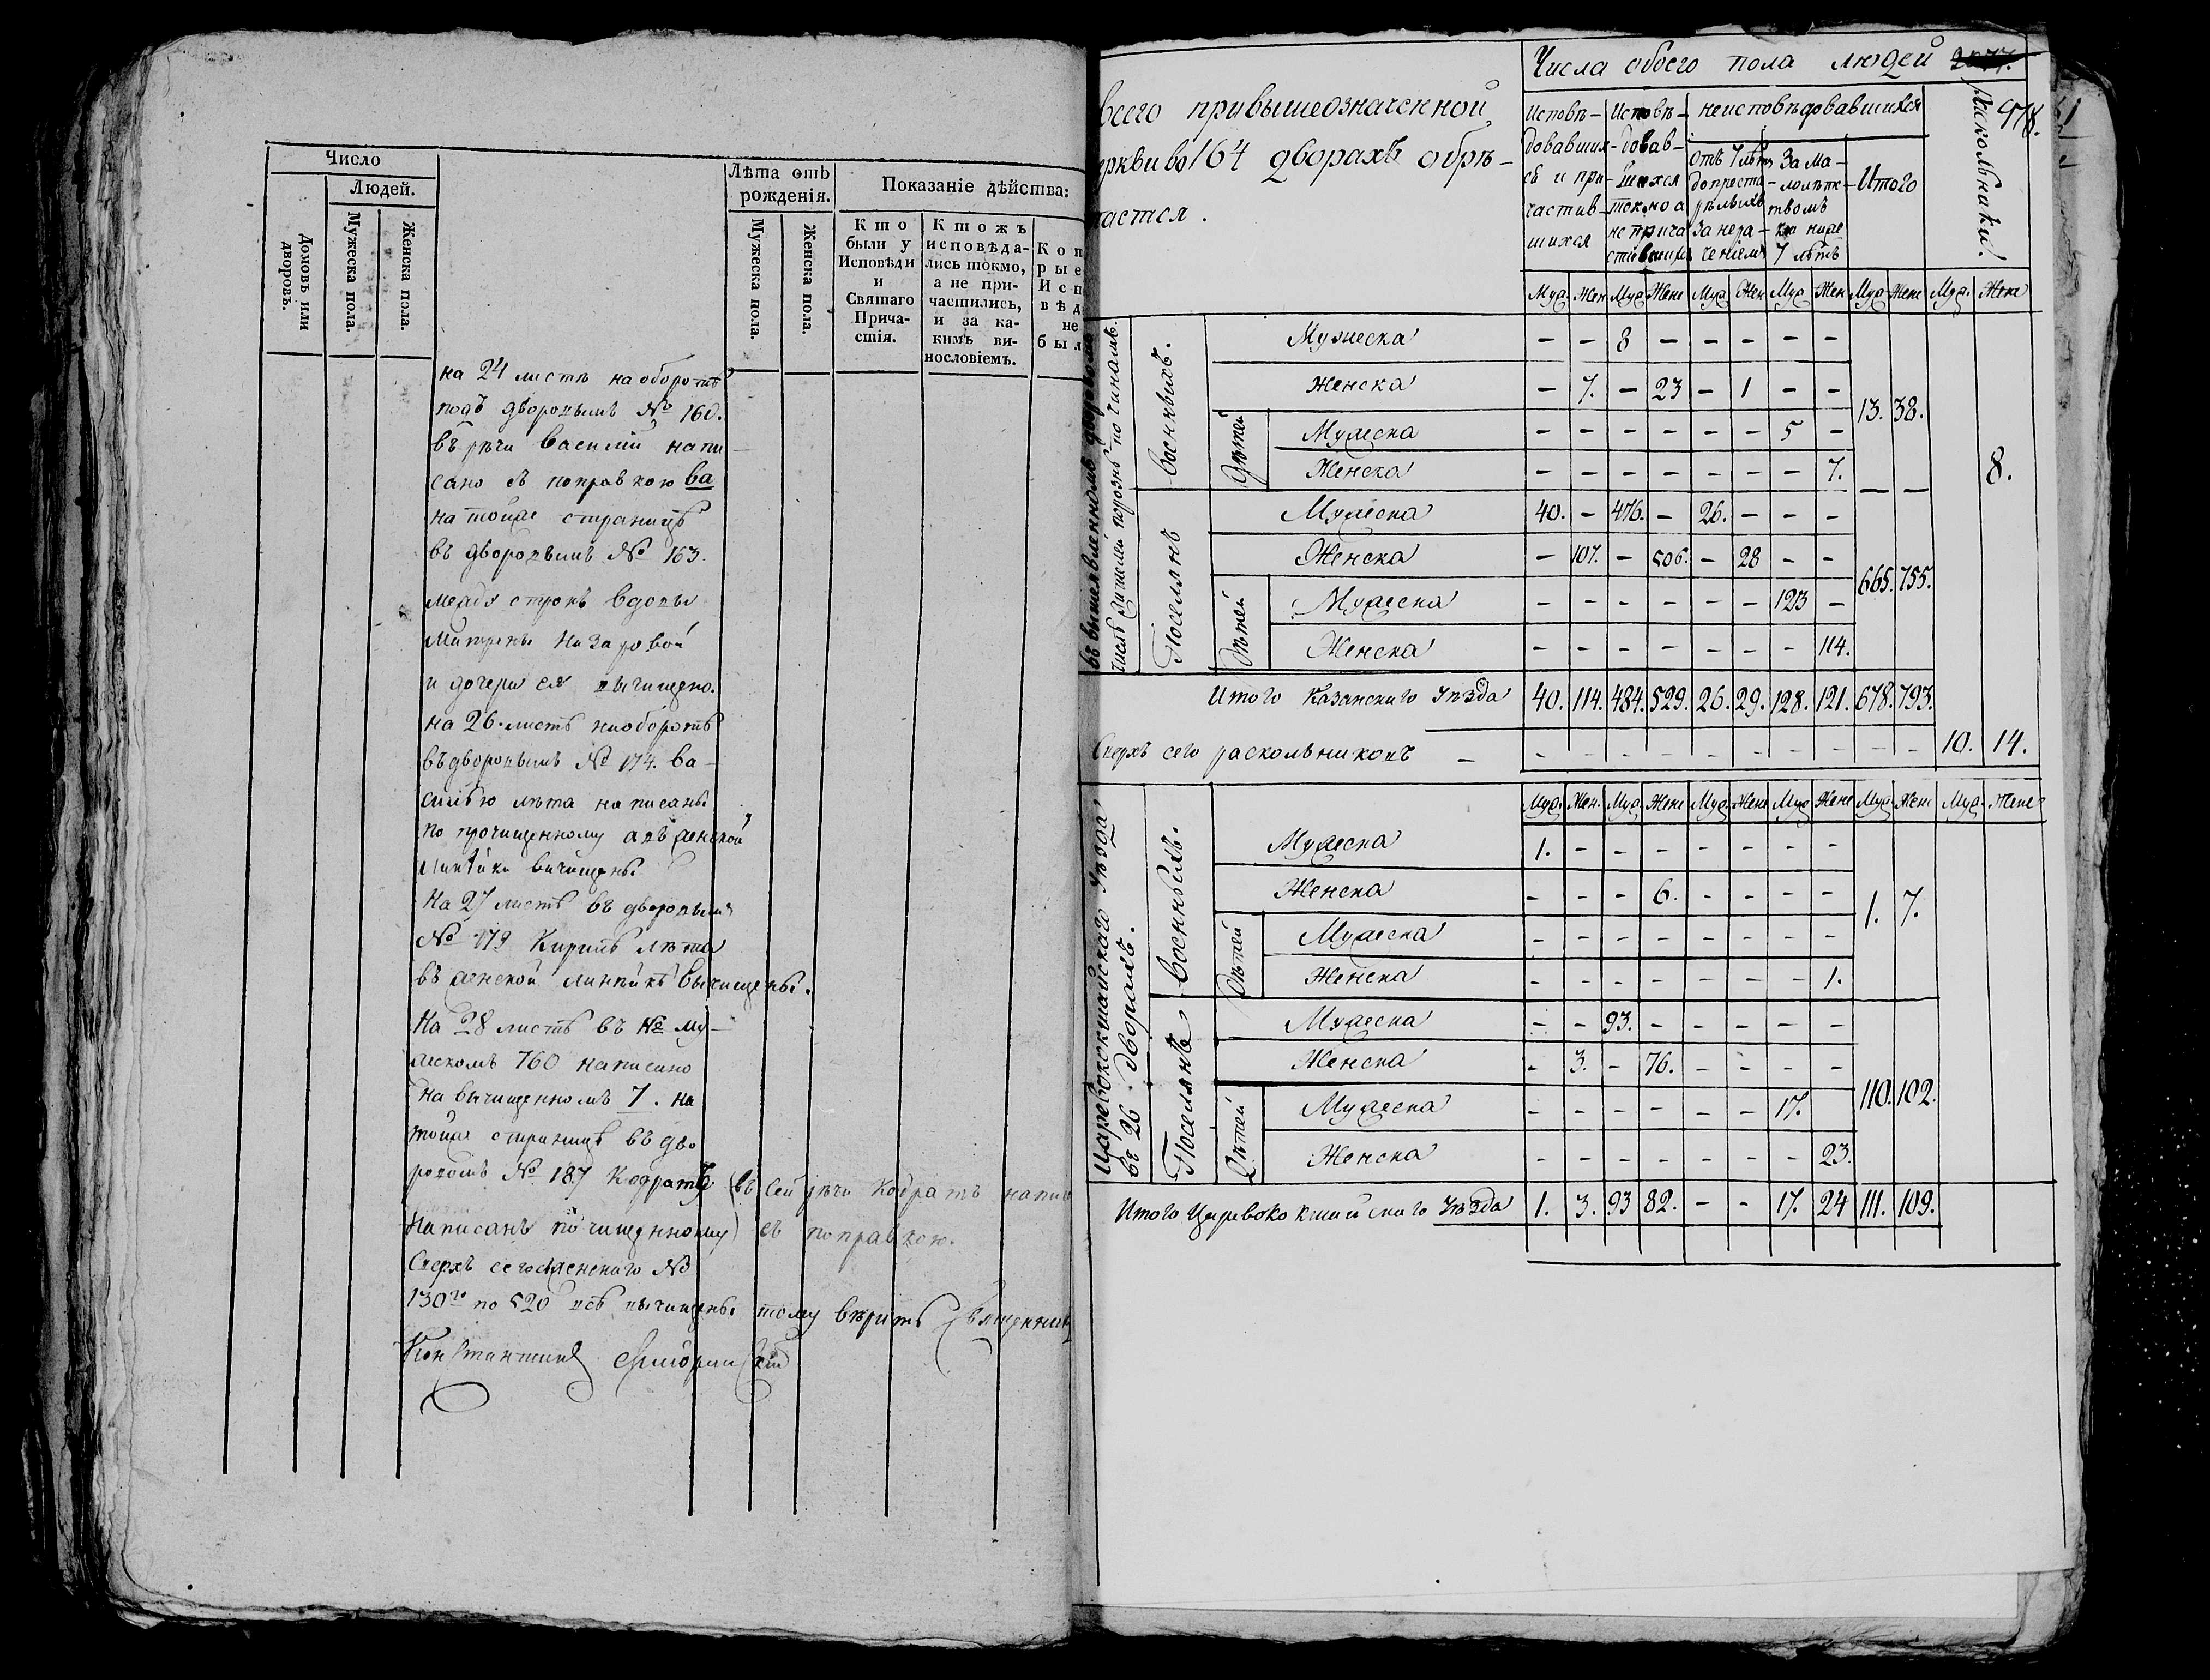 Число
Людей.
Домовъ или дворовъ.
Мужеска пола.
Женска пола.
Лѣта отъ рожденія.
Мужеска пола.
Женска пола.
Показаніе дѣйства:
Кто были у Исповѣди и Святаго Причастія.
Ктожъ исповѣдались токмо, а не причастились, и за какимъ винословіемъ.
Коп
рые
Исп
вѣд
не
был
на 24 листѣ на оборотѣ
подъ дворовымъ № 160.
въ рѣчи Василій напи
сано съ поправкою ва
на тойже страницѣ
въ дворовымъ № 163.
между строкъ вдовы
Матрены Назаровой
и дочери ея вычищено.
на 26 листѣ на оборотѣ
въ дворовымъ № 174. Ва-
силью лѣта написаны
по прочищенному а въ женской
вычищены
На 27 листѣ въ дворовымъ
№ 179 лѣта
въ женской вычищены.
На 28 листѣ въ № му-
жескомъ 760 написано
на вычищенномъ 7. на
тойже страницѣ въ дво
ровомъ № 187 Кодратъ (въ сей рѣчи Кодратъ написа
написанъ по чищенному) съ поправкою.
Сверхъ сего женскаго №
130го по 520 всѣ вычищены тому вѣрить Священник
978.
Всего привышеозначенной
еркви во 164 дворахъ обрѣ-
тается.
Числа обоего пола людей
Исповѣ-довавших-ся и при-частив-шихся
Исповѣ-довав-шихся токмо а не прича стившихся
неисповѣдовавшихся
отъ 7 лѣтъ до престарѣлыхъ за нерачениемъ
За ма-лолѣтс-твомъ ниже 7 лѣтъ
Итого
Раскольники.
Муж. Жен Муж Женс Муж Жен Муж Жен Муж Женс Муж. Женс
Числѣ жителей порознь по чинамъ.
Военныхъ.
Мужеска – – 8 – – – – –
Женска – 7. – 23 – 1 – –
13. 38.
дѣтей
Мужеска – – – – – – 5 –
Женска – – – – – – – 7.
8.
Поселянъ
Мужеска 40. – 476. – 26. – – –
Женска – 107. – 506. – 28 – –
665. 755.
дѣтей
Мужеска – – – – – – 123 –
Женска – – – – – – – 114.
Итого Казанскаго Уѣзда 40. 114. 484. 529. 26. 29. 128. 121. 678. 793.
Сверхъ сего раскольниковъ – – – – – – – – – – – 10. 14.
Муж. Жен. Муж. Женс Муж. Женс Муж Женс Муж. Женс Муж. Женс
Царевококшайскаго Уѣзда,
въ 26. дворахъ.
Военныхъ.
Мужеска 1. – – – – – – –
Женска – – – 6. – – – –
1. 7.
дѣтей
Мужеска – – – – – – – –
Женска – – – – – – – 1.
Поселянъ
Мужеска – – 93. – – – – –
Женска – 3. – 76. – – – –
110. 102.
Дѣтей
Мужеска – – – – – – 17. –
Женска – – – – – – – 23.
Итого Царевококшайскаго Уѣзда 1. 3. 93 82. – – 17. 24 111. 109.